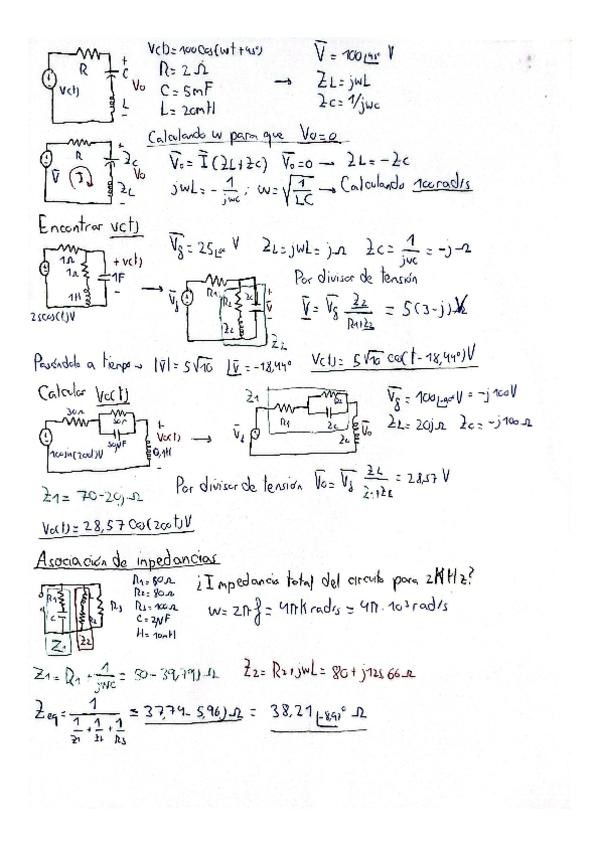 V(t)=100cos(wt+45°)
R=2Ω
C=5mF
L=20mH
→
V̅=100∠45° V
ZL=jwL
ZC=1/jwc
R C L V(t) Vo + -
Calculando w para que Vo=0
V̅o=I̅(ZL+ZC) V̅o=0 → ZL=-ZC
jwL=-1/jwc; w=√(1/LC) → Calculando 100rad/s
R V̅ I ZC ZL Vo + -
Encontrar v(t)
V̅g=25∠0° V ZL=jwL=jΩ ZC=1/jwc=-jΩ
1Ω 1Ω 1H 1F + v(t) - 25cos(t)V
→ V̅g R1 R2 ZL ZC V̅ + - Z2
Por divisor de tensión
V̅=V̅g Z2/(R1+Z2)=5(3-j)V
Pasándolo a tiempo → |V̅|=5√10 ∠V̅=-18,44° V(t)=5√10 cos(t-18,44°)V
Calcular Vo(t)
30Ω 50μF 0,1H + Vo(t) - 100sin(200t)V
→ Z1 R1 R2 ZC ZL V̅g V̅o
V̅g=100∠-90°V=-j100V
ZL=20jΩ ZC=-j100Ω
Z1=70-20jΩ
Por divisor de tensión V̅o=V̅g ZL/(Z1+ZL)=28,57 V
Vo(t)=28,57cos(200t)V
Asociación de inpedancias
R1 C Z1 Z2 R3
R1=50Ω
R2=80Ω
R3=100Ω
C=2μF
H=10mH
¿Impedancia total del circuito para 2KHz?
w=2πf=4πKrad/s=4π·10³rad/s
Z1=R1+1/jwc=50-39,79jΩ Z2=R2+jwL=80+j125,66Ω
Zeq=1/(1/Z1+1/Z2+1/R3)=37,74-5,96jΩ=38,21∠-8,97° Ω